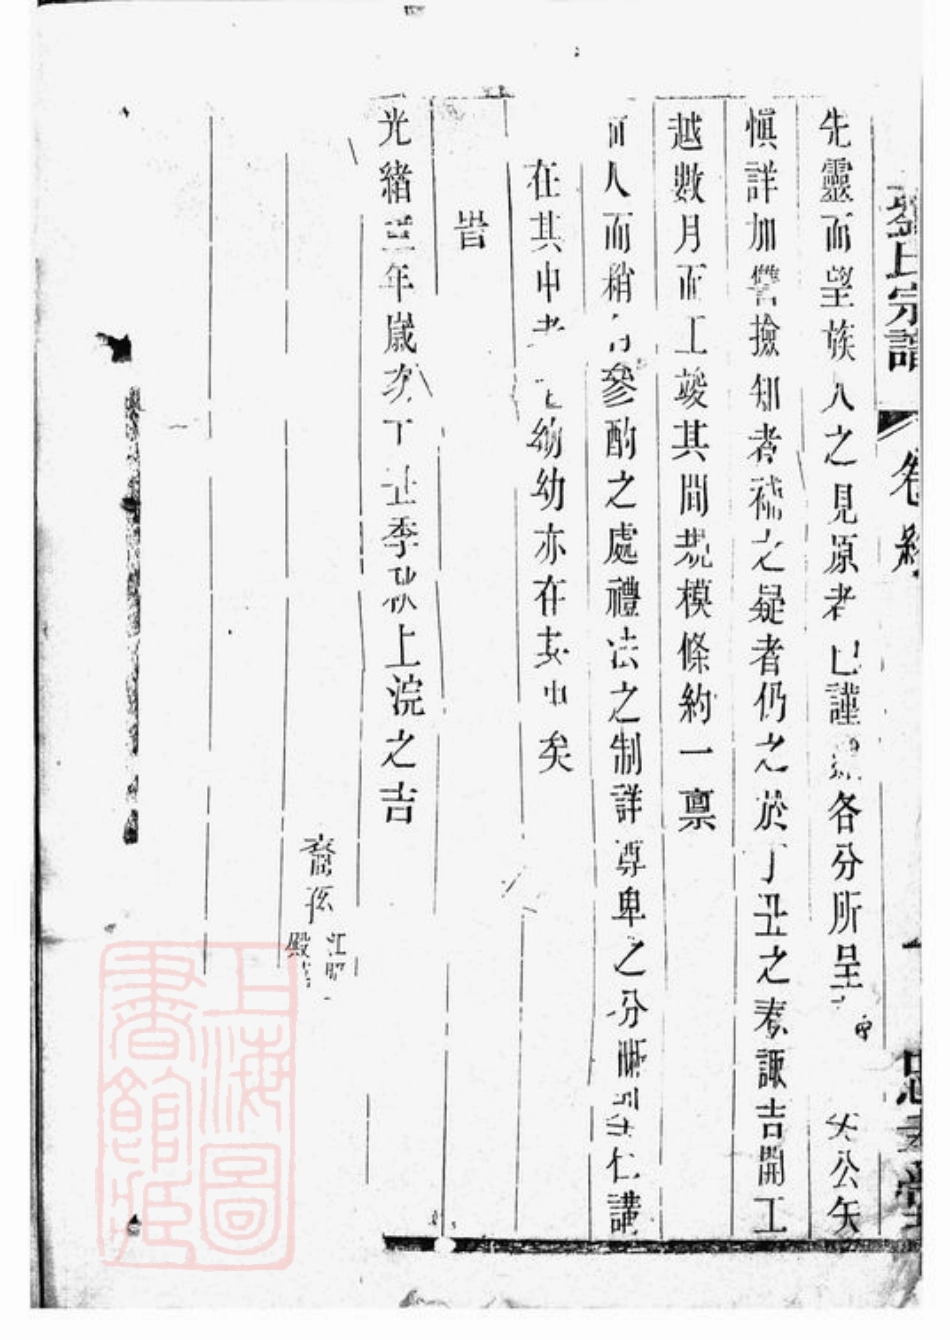 劉氏宗譜
卷終
先靈而望族人之見原者也謹 各分所呈 公矢
慎詳加讐撿知者補之疑者仍之於丁丑之春諏吉開工
越數月而工竣其間規模條約一禀
前人而稍有參酌之處禮法之制詳尊卑之分晰 仁講
在其中者 幼幼亦在其中矣
旹
光緒三年歲次丁丑季秋上浣之吉
裔孫
上海圖書館藏